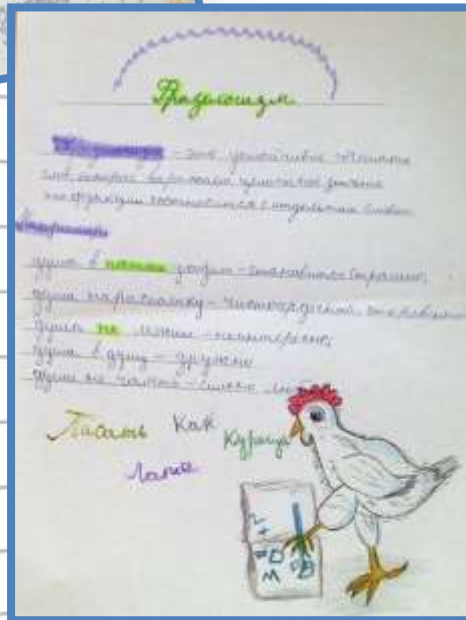 Фразеологизм
- это устойчивое
слов которые выражают целостное
по функции с отдельным словом
душа в пятки уходит - становится страшно;
душа нараспашку - чистосердечный, откровенный
душа не лежит - неинтересно;
душа в душу - дружно
душа не -
Писать Как Курица
Лапой